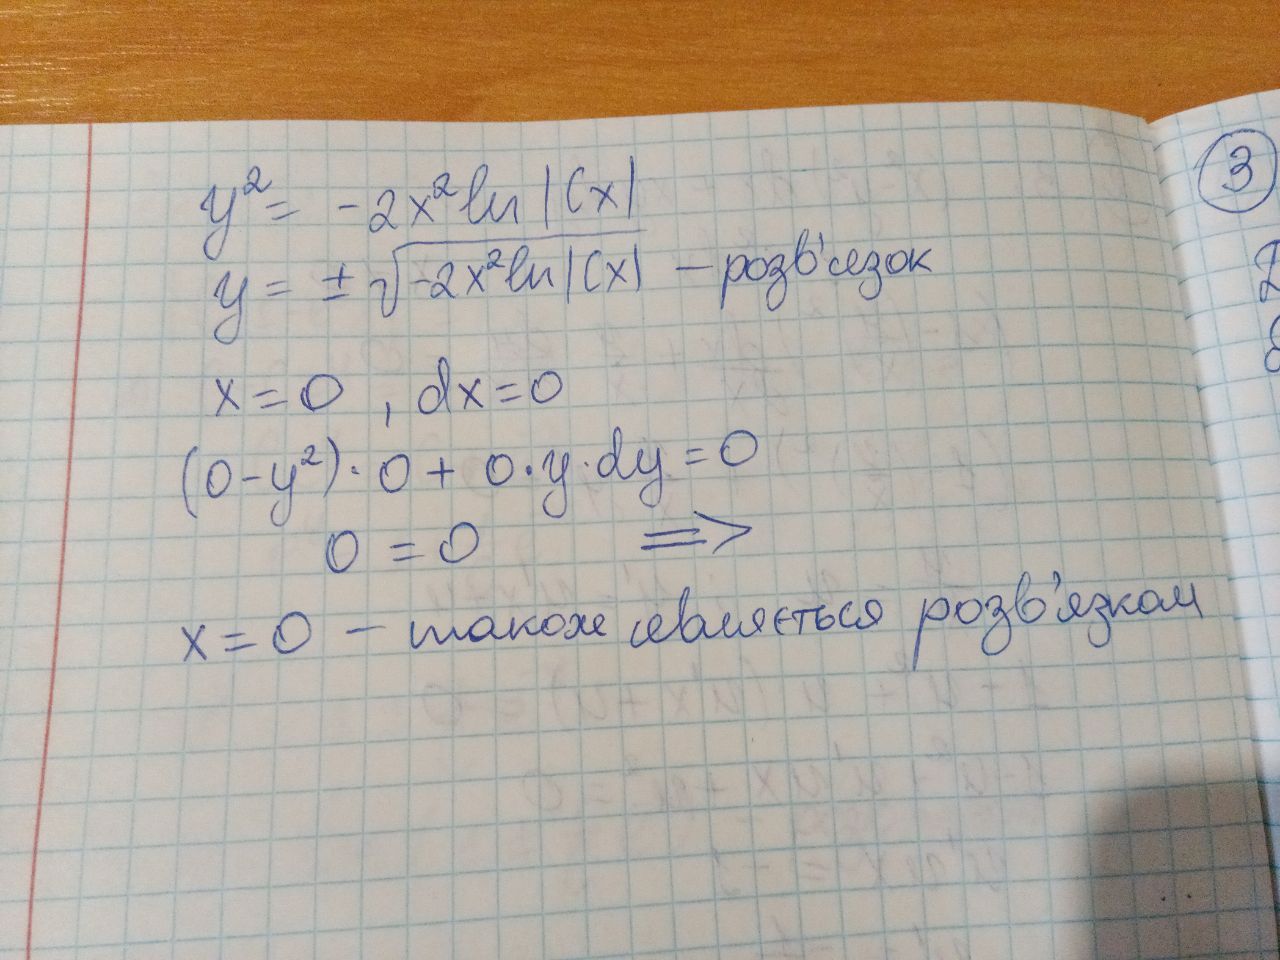 y² = -2x² ln |Cx|
y = ± √(-2x² ln |Cx|) – розв'язок
x = 0 , dx = 0
(0 - y²) · 0 + 0 · y · dy = 0
0 = 0 =>
x = 0 – також являється розв'язком
3